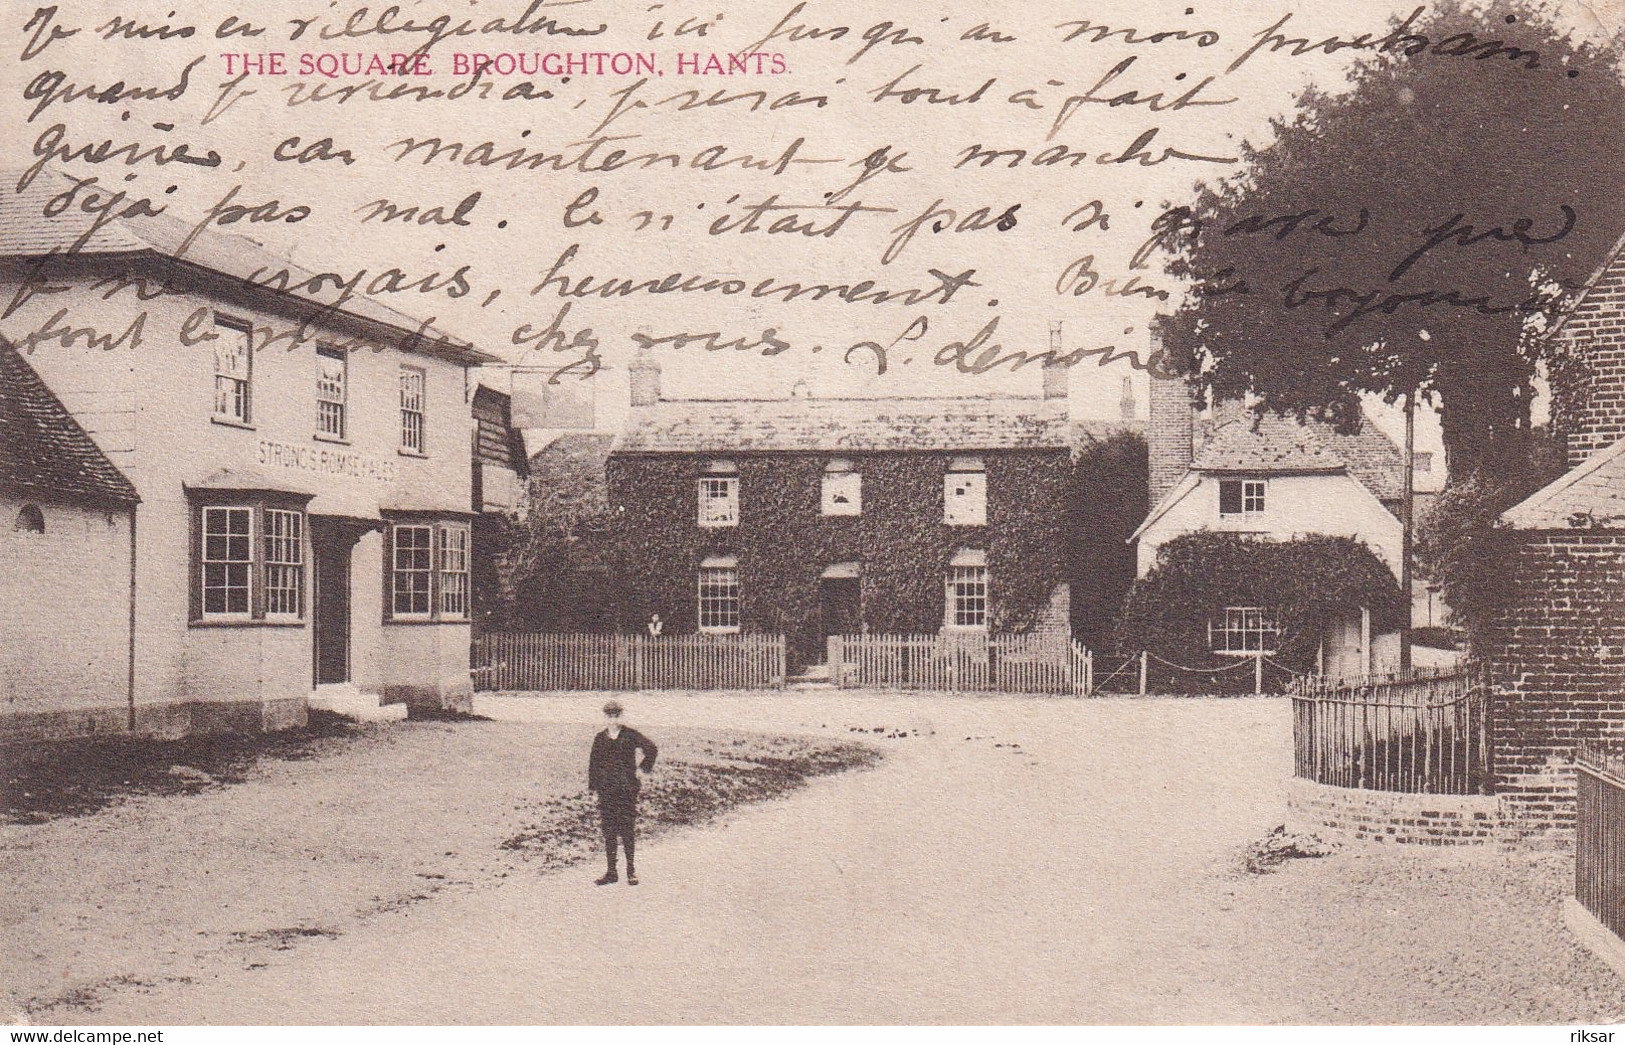 Je suis en villégiature ici jusqu'au mois prochain.
THE SQUARE. BROUGHTON, HANTS.
quand je reviendrai, je serai tout à fait
guérie, car maintenant je marche
déjà pas mal. Ce n'était pas si grave que
je ne croyais, heureusement. Bien le
tout le monde chez vous. L. Lenoire
STRONG'S ROMSEY ALES
riksar